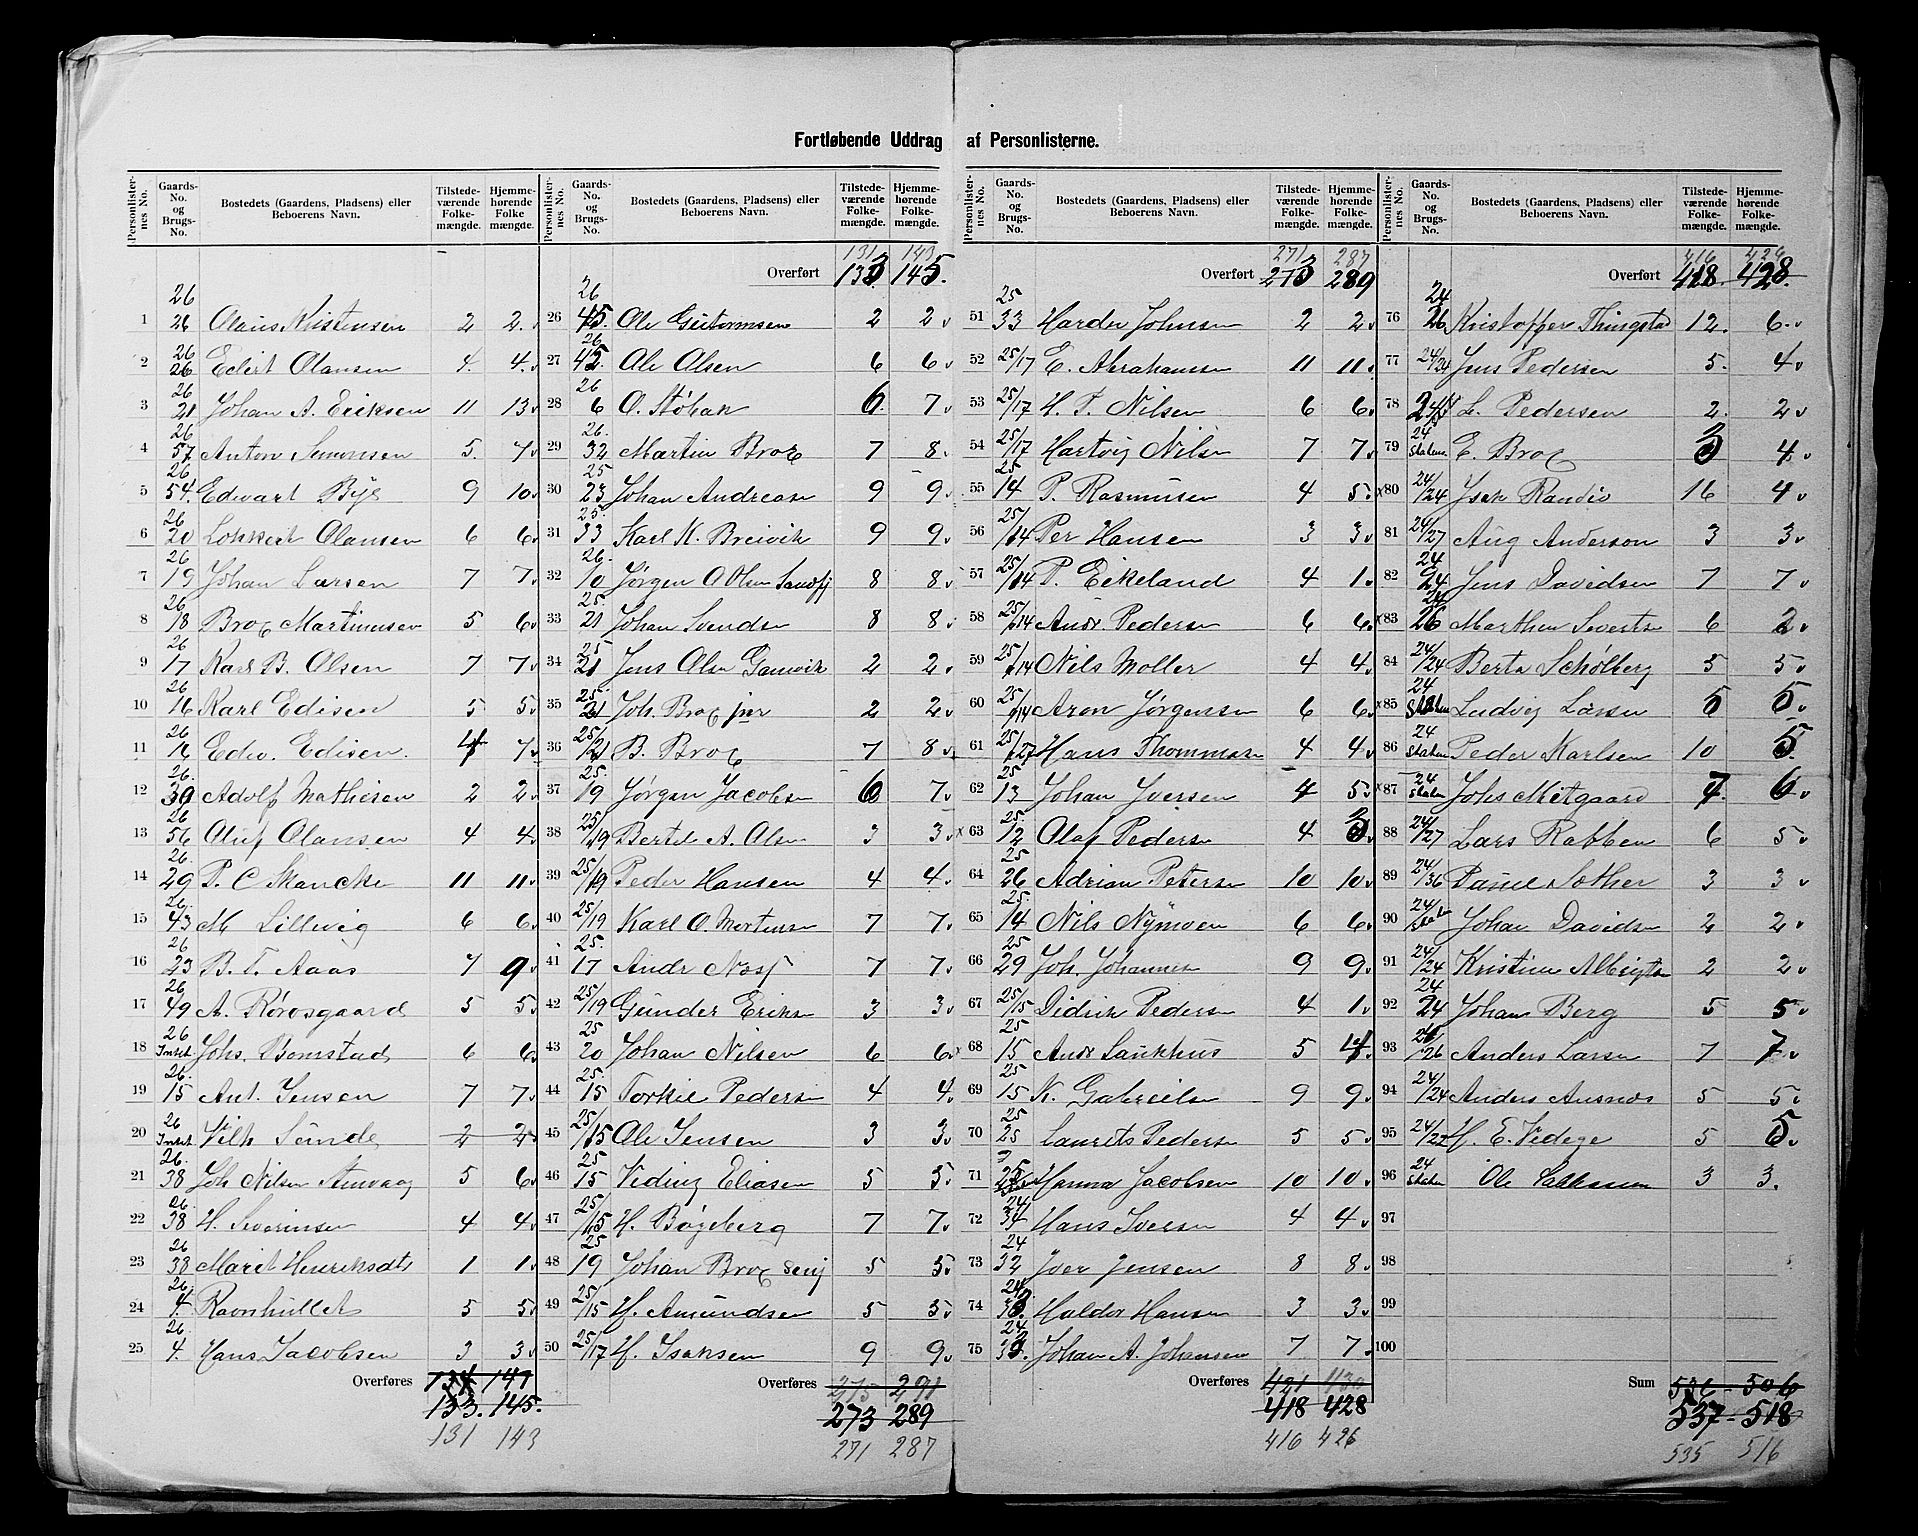 Fortløbende Uddrag af Personlisterne.
Personlister-nes No. Gaards-No. og Brugs-No. Bostedets (Gaardens, Pladsens) eller Beboerens Navn. Tilstede-værende Folke-mængde. Hjemme-hørende Folke mængde.
1 26 26 Olaus Kristensen 2 2
2 26 26 Edert Olansen 4. 4.
3 26 21 Johan A. Eriksen 11 13
4 26 57 Anton Simonsen 5. 7
5 26 54. Edvart Bye 9 10
6 26 20 Lokkert Olansen 6 6
7 26 19 Johan Larsen 7 7
8 26 18 Brox Martinusen 5 6
9 26 17 Karl B. Olsen 7 7
10 26 16 Karl Edisen 5 5
11 26 16 Edv. Edisen. 4 7
12 26. 30 Adolf Mathisen 2 2
13 26 56 Oluf Olansen 4 4
14 26. 29 P. C Skancke 11 11
15 26. 43 M Lillevig 6 6
16 26 23 B. T. Aaas 7 9
17 26 49 A. Rørosgaard 5 5
18 26 Indset. Johs. Bomstad 6 6
19 26. 15 Ant. Jensen 7 7
20 26 Indset. Vilh Sunde 2 2
21 26. 38 Joh Nilsen 5 6
22 26. 38 H. Severinsen 4 4
23 26 38 Marit Henriksdt 1 1
24 26 4. Ravnhullet 5 5
25 26. 4. Hans Jacobsen 3 3
Overføres 134 147
133. 145.
131 143
Personlister-nes No. Gaards-No. og Brugs-No. Bostedets (Gaardens, Pladsens) eller Beboerens Navn. Tilstede-værende Folke-mængde. Hjemme-hørende Folke-mængde.
131 143
Overført 133 145.
26 26 45. Ole Guttormsen 2 2
27 26 42. Ole Olsen 6 6
28 26 6 O. Støbak 6. 7
29 26. 32 Martin Brox 7 8
30 25 23 Johan Andreasn 9 9
31 25. 33 Karl K. Breivik 9 9
32 26. 10 Jørgen O Olsen Sandfj 8 8
33 25. 21 Johan Svendsn 8 8
34 25 21 Jens Olsn Gamvik 2 2
35 25. 21 Joh. Brox jnr 2 2
36 25/21 B. Brox 7 8
37 25. 19 Jørgen Jacobsn 6 7
38 25/19 Bertel A. Olsn 3 3
39 25/19 Peder Hansen 4 4
40 25/19 Karl O. Mortensn 7 7
41 25. 17 Andr Næss 7 7
42 25/19 Gunder Eriksn 3 3
43 25 20 Johan Nilsen 6 6
44 25. 15 Torkil Pedersn 4 4
45 25/15 Ole Jensen 3 3
46 25 15 Viding Eliasen 5 5
47 25/15 H. Bøgeberg 7 7
48 25 19 Johan Brox senj 5 5
49 25/15 H. Amundsn 5 5
50 25/17 H. Isaksen 9 9
Overføres 275 291
273 289
271 287
Personlister-nes No. Gaards-No. og Brugs-No. Bostedets (Gaardens, Pladsens) eller Beboerens Navn. Tilstede-værende Folke-mængde. Hjemme-hørende Folke-mængde.
271 287
Overført 273 289
51 25 33 Harder Johnsen 2 2
52 25/17 E. Abrahamsn 11 11
53 25/17 H. P. Nilsen 6 6
54 25/17 Hartvig Nilsn 7 7
55 25 14 P. Rasmusen 4 5
56 25/14 Per Hansen 3 3
57 25/14 P. Eikeland 4 1
58 25/14 Andr. Pedersn 6 6
59 25/14 Nils Moller 4 4
60 25/14 Aron Jørgensn 6 6
61 25/27 Hans Thommasn 4 4
62 25 13 Johan Iversen 4 5
x 63 25. 12 Olaf Pedersn 4 3
64 25 26 Adrian Petersn 10 10
65 25. 14 Nils Nymoen 6 6
66 25 29 Joh. Johannesn 9 9
67 25/15 Didrik Pedersn 4 1
x 68 25 15 Andr Laukhus 5 4
69 25 15 K. Gabrielsn 9 9
70 25 25 Laurits Pedersn 5 5
71 25 Hanna Jacobsen 10 10
72 24 34 Hans Iversn 4 4
73 24 32 Iver Jensen 8 8
74 24 33 Haldor Hansn 3 3
75 24 33. Johan A. Johansen 7 7
Overføres 421 430
418 428
416 426
Personlister-nes No. Gaards-No. og Brugs-No. Bostedets (Gaardens, Pladsens) eller Beboerens Navn. Tilstede-værende Folke-mængde. Hjemme-hørende Folke-mængde.
416 426
Overført 418. 428.
76 24 26 Kristoffer Thingstad 12. 6
77 24/24 Jens Pedersen 5. 4
78 24/ L. Pedersen 2. 2
79 24 Staten E. Brox 3 4
x80 24/24 Isak Randio 16 4
81 24/27 Aug Anderson 3 3
82 24 24 Jens Davidsn 7 7
x83 24 26 Marthin Sivertsn 6 2
84 24/24 Berta Schølberg 5 5
x85 24 Staten Ludvig Larsen 5 5
86 24 Staten Peder Karlsen 10 5
x87 24 Staten Johs Metgaard 7 6
88 24/27 Lars Rabben 6 5
89 24/36 Daniel Sother 3 3
90 24/Staten Johan Davidsn 2 2
91 24/24 Kristine Albrigtsn 2 2
92 24 24 Johan Berg 5 5
93 24/26 Anders Larsn 7 7
94 24/24 Anders Ausnæs 5 5
95 24/27 H. E. Vedege 5 5
96 24 Staten Ole 3 3.
97
98
99
100
Sum 536 506
537 518
535 516